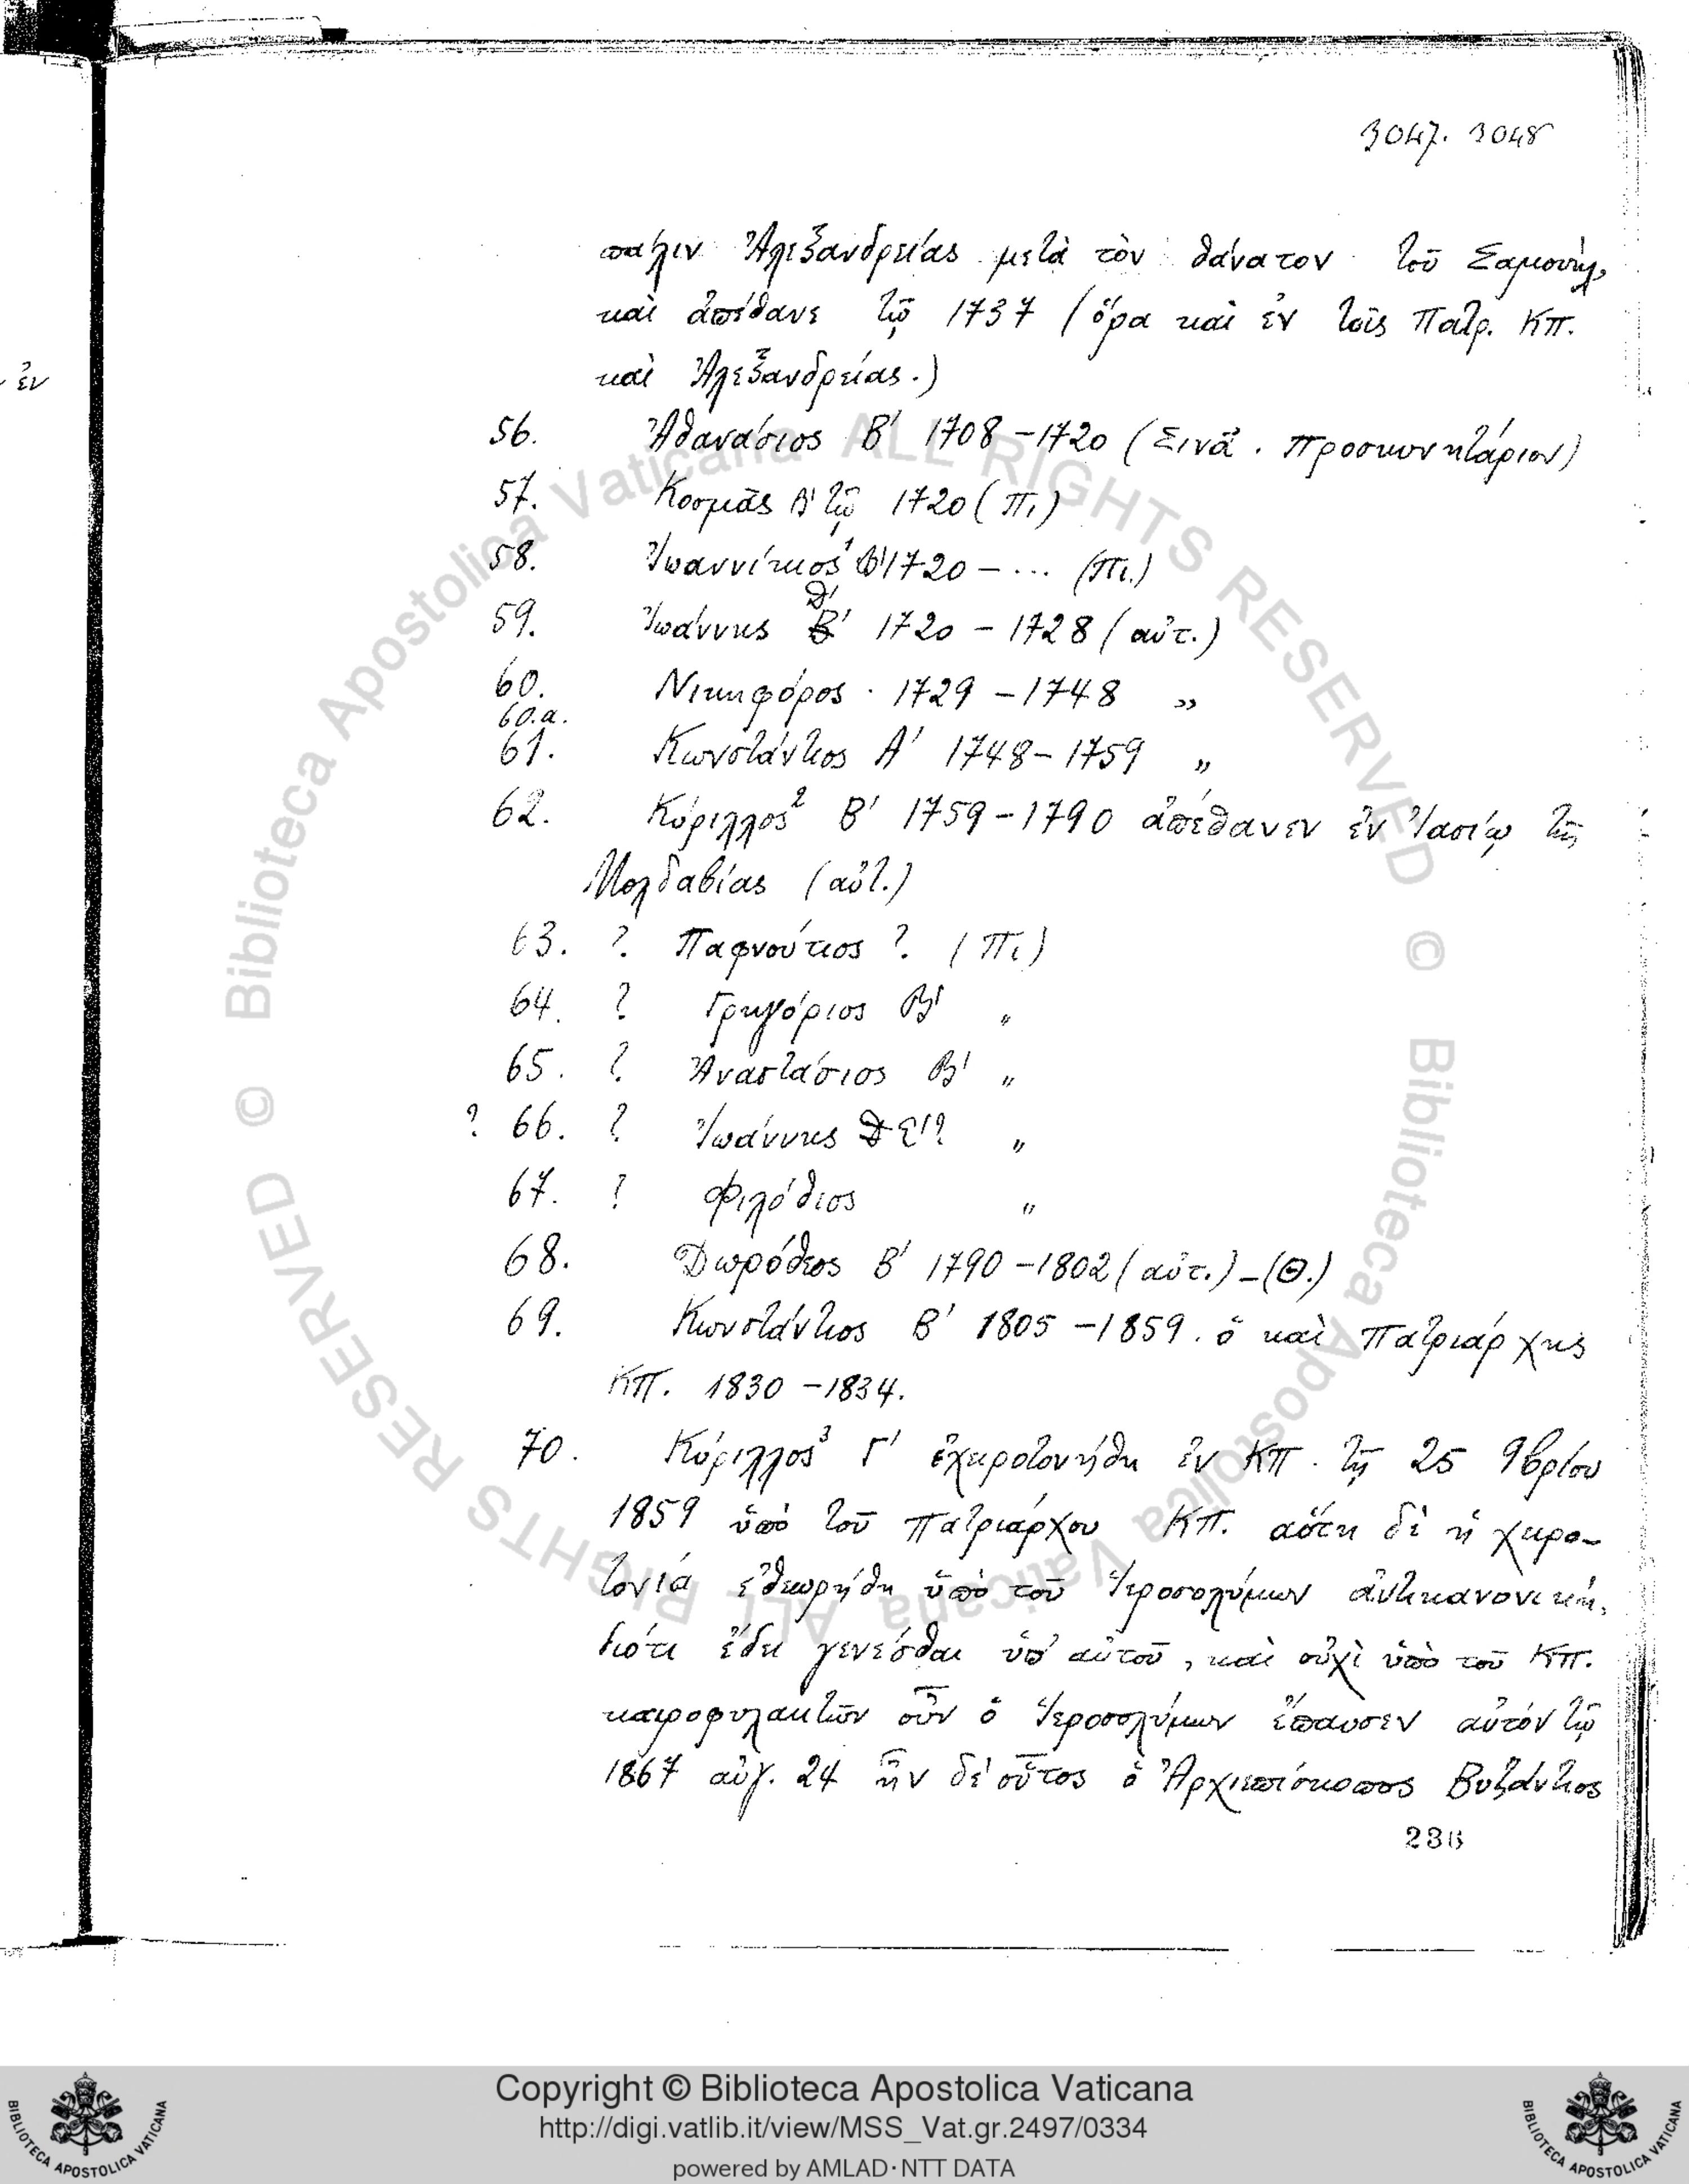 3047. 3048
πάλιν Ἀλεξανδρείας μετὰ τὸν θάνατον τοῦ Σαμουήλ,
καὶ ἀπέθανε τῷ 1737 (ὅρα καὶ ἐν τοῖς Πατρ. ΚΠ.
καὶ Ἀλεξανδρείας.)
ἐν
56. Ἀθανάσιος Β' 1708-1720 (Σινᾶ. Προσκυνητάριον)
57. Κοσμᾶς Α' τῷ 1720 (Πι)
58. Ἰωαννίκιος¹ 1720 - ... (Πι.)
59. Ἰωάννης Δ' 1720 - 1728 (αὐτ.)
60. Νικηφόρος. 1729 - 1748 „
60.α.
61. Κωνστάντιος Α' 1748 - 1759 „
62. Κύριλλος² Β' 1759-1790 ἀπέθανεν ἐν Ἰασίῳ τῆς
Μολδαβίας (αὐτ.)
63. ? Παφνούτιος ? (Πι)
64. ? Γρηγόριος Β' „
65. ? Ἀναστάσιος Β' „
? 66. ? Ἰωάννης Δ Ε'? „
67. ? Φιλόθεος „
68. Δωρόθεος Β' 1790 - 1802 (αὐτ.) - (Θ.)
69. Κωνστάντιος Β' 1805 - 1859. ὁ καὶ Πατριάρχης
ΚΠ. 1830 - 1834.
70. Κύριλλος³ Γ' ἐχειροτονήθη ἐν ΚΠ. τῇ 25 9βρίου
1859 ὑπὸ τοῦ Πατριάρχου ΚΠ. αὕτη δὲ ἡ χειρο-
τονία ἐθεωρήθη ὑπὸ τοῦ Ἱεροσολύμων ἀντικανονική,
διότι ἔδει γενέσθαι ὑπ' αὐτοῦ, καὶ οὐχὶ ὑπὸ τοῦ ΚΠ.
καιροφυλακτῶν οὖν ὁ Ἱεροσολύμων ἔπαυσεν αὐτόν τῷ
1867 αὐγ. 24 ἦν δὲ οὗτος ὁ Ἀρχιεπίσκοπος Βυζάντιος
236
© Biblioteca Apostolica Vaticana ALL RIGHTS RESERVED © Biblioteca Apostolica Vaticana ALL RIGHTS RESERVED
Copyright © Biblioteca Apostolica Vaticana
http://digi.vatlib.it/view/MSS_Vat.gr.2497/0334
powered by AMLAD·NTT DATA
BIBLIOTECA APOSTOLICA VATICANA
BIBLIOTECA APOSTOLICA VATICANA